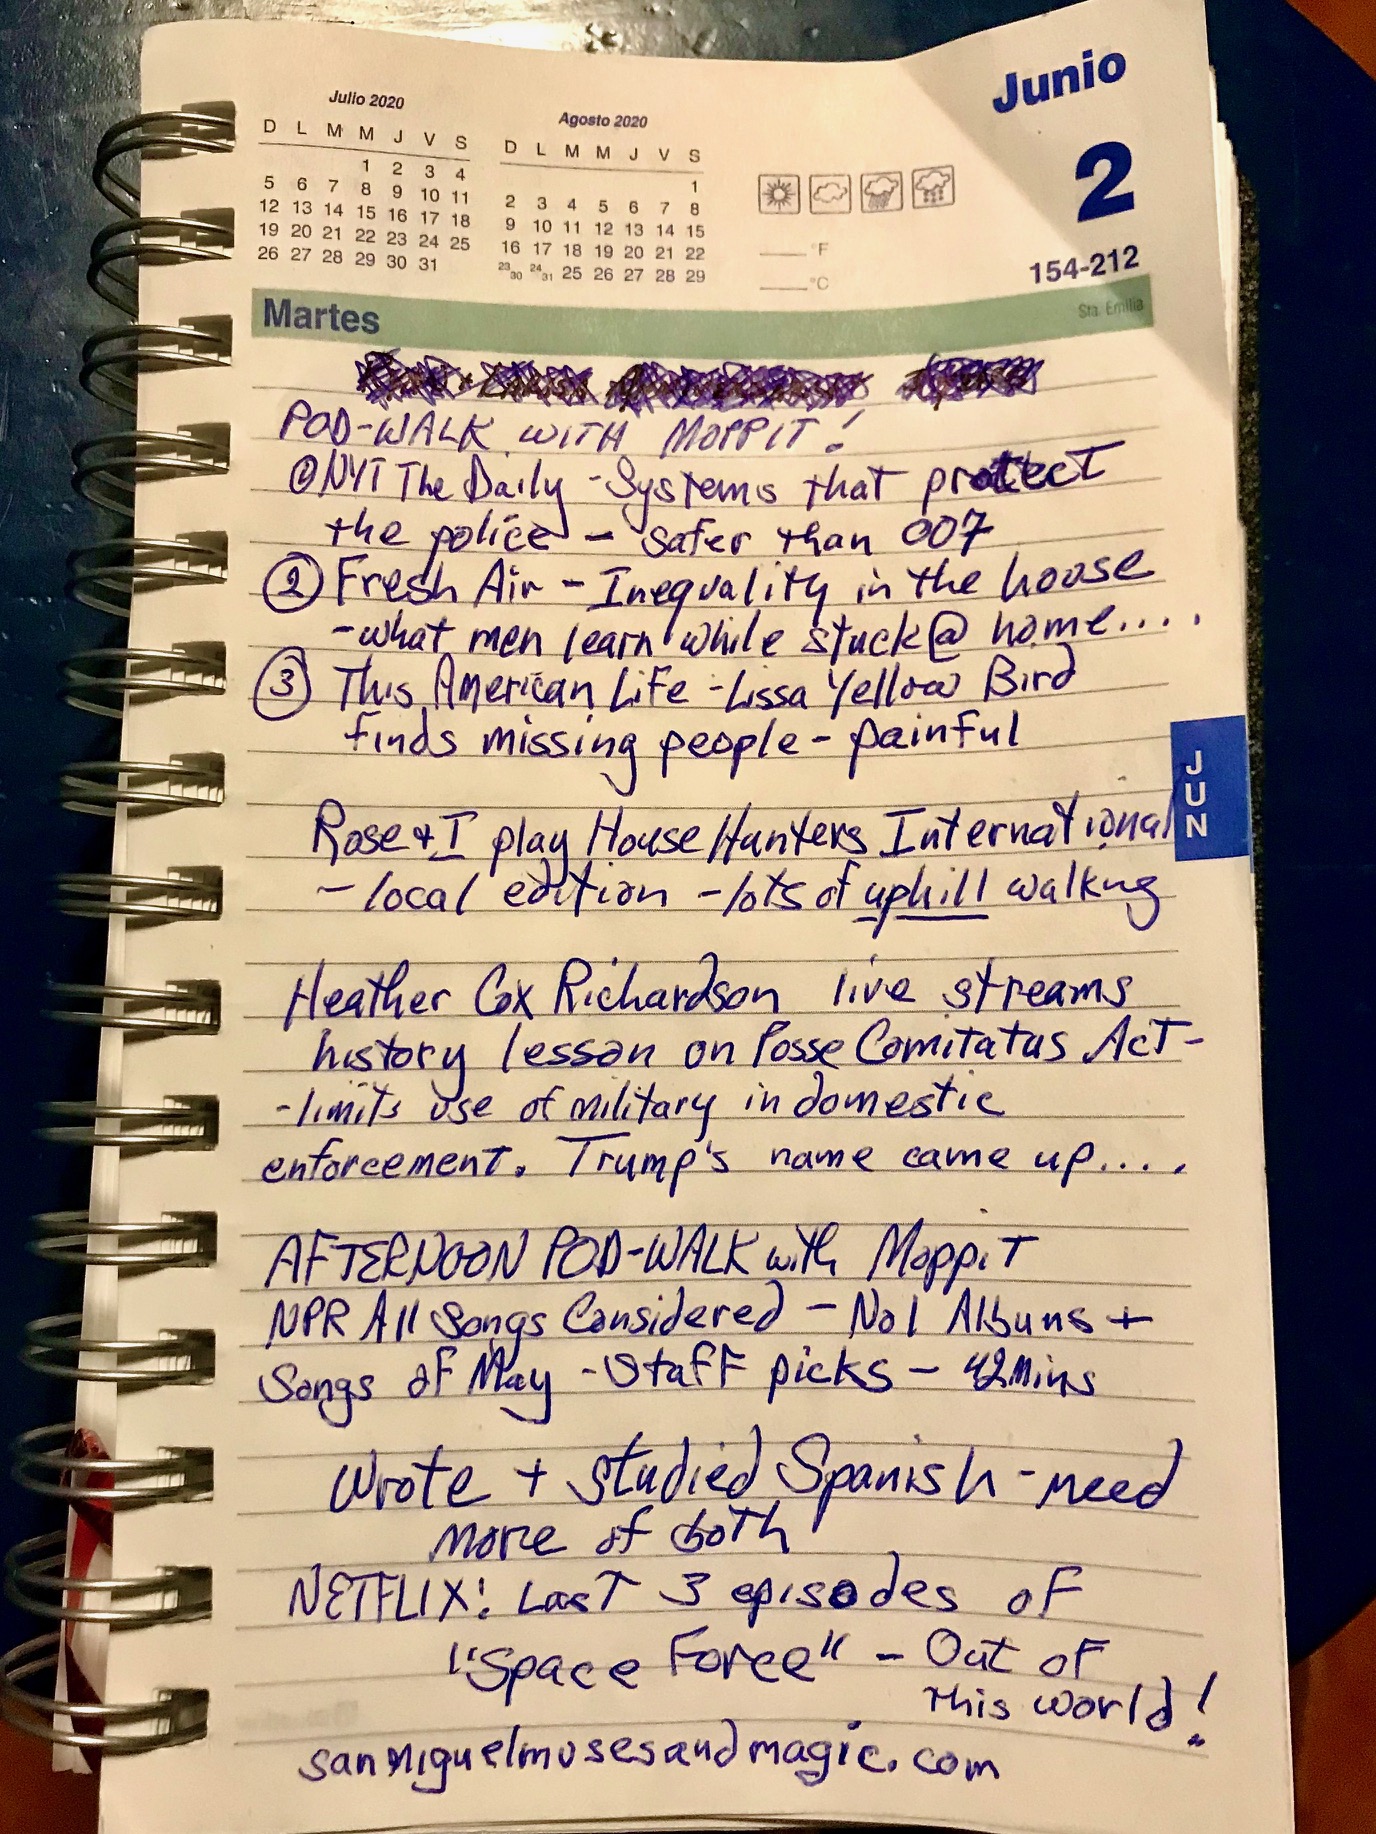 Junio
2
154-212
Julio 2020
D L M M J V S
1 2 3 4
5 6 7 8 9 10 11
12 13 14 15 16 17 18
19 20 21 22 23 24 25
26 27 28 29 30 31
Agosto 2020
D L M M J V S
1
2 3 4 5 6 7 8
9 10 11 12 13 14 15
16 17 18 19 20 21 22
23/30 24/31 25 26 27 28 29
°F
°C
Martes
Sta. Emilia
POD-WALK WITH MOPPIT!
① NYT The Daily - Systems that protect
the police - safer than 007
② Fresh Air - Inequality in the house
- what men learn while stuck @ home....
③ This American Life - Lissa Yellow Bird
finds missing people - painful
JUN
Rose & I play House Hunters International
- local edition - lots of uphill walkng
Heather Cox Richardson live streams
history lesson on Posse Comitatus Act -
- limits use of military in domestic
enforcement. Trump's name came up....
AFTERNOON POD-WALK with Moppit
NPR All Songs Considered - No 1 Albums +
Songs of May - Staff picks - 42 Mins
Wrote + studied Spanish - need
more of both
NETFLIX! Last 3 episodes of
"Space Force" - Out of
this world!
sanmiguelmusesandmagic.com